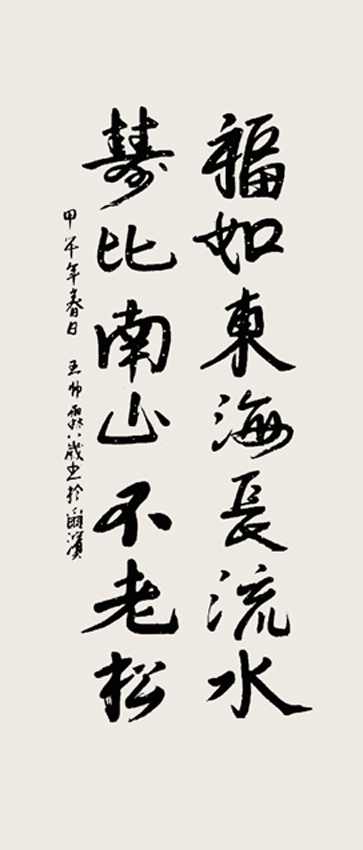 福如東海長流水
壽比南山不老松
甲午年春日 王帅 八歲書於 濱